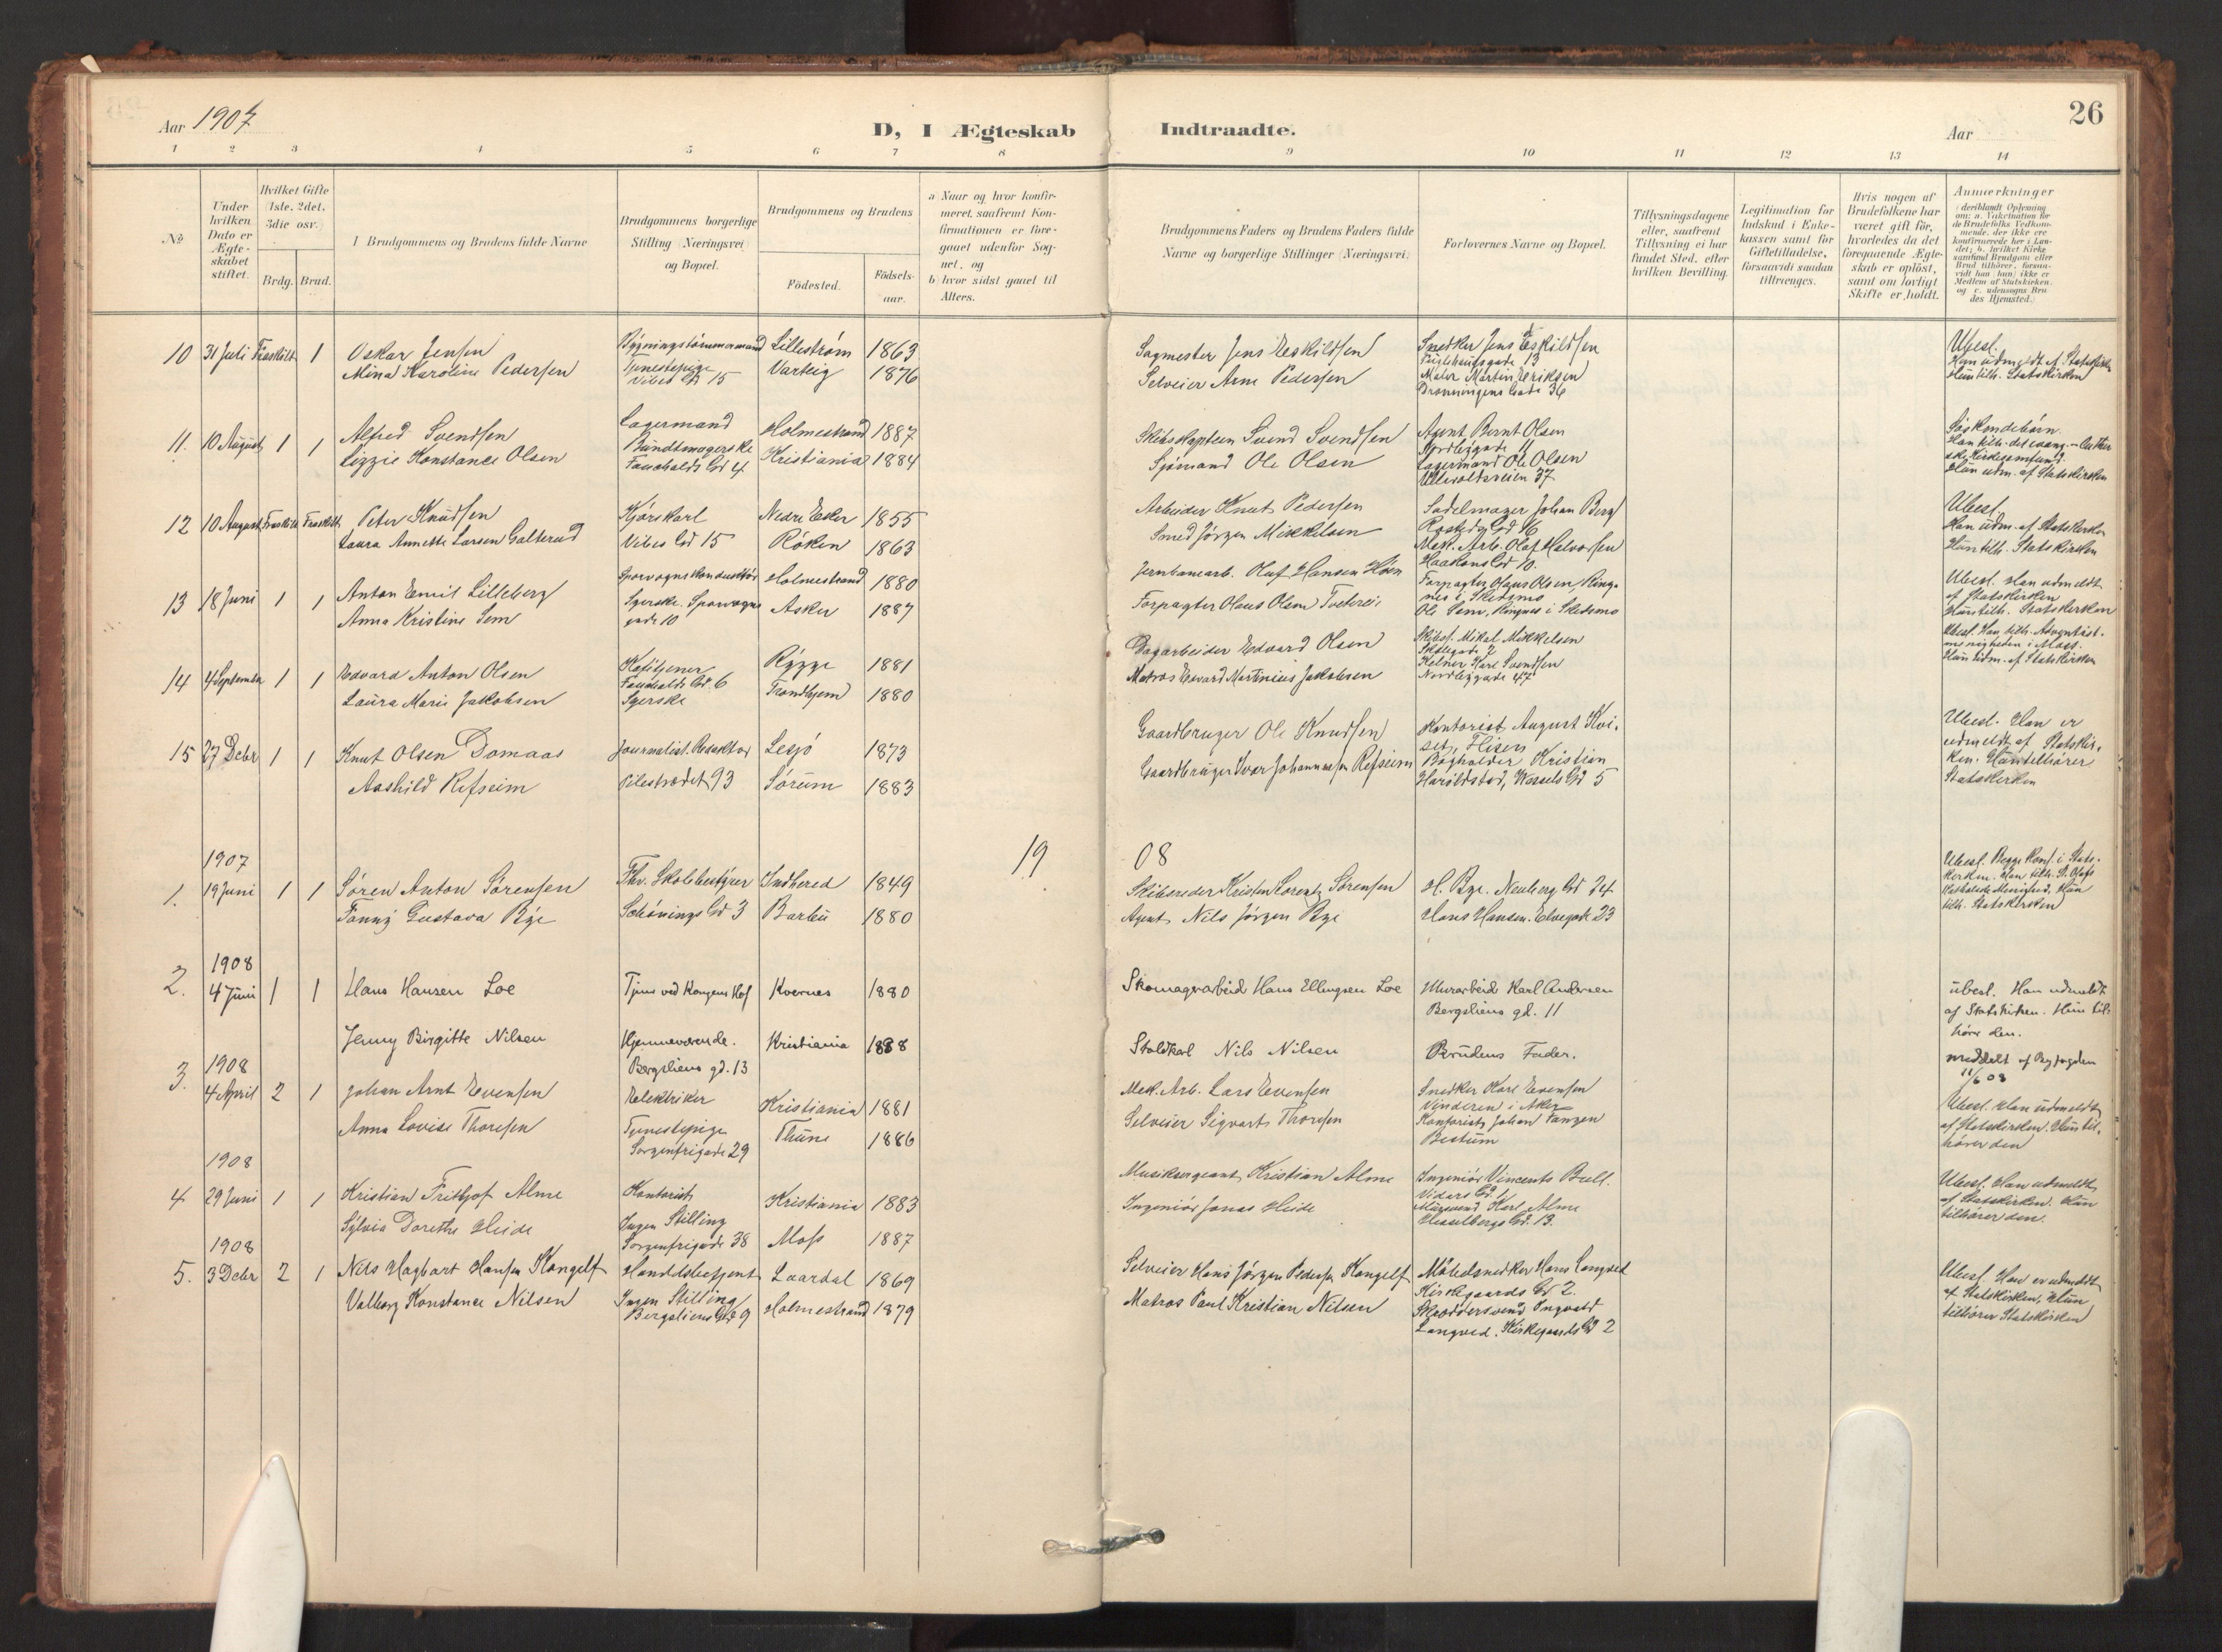 Aar 1907
D, I Ægteskab Indtraadte.
Aar
26
1 2 3 4 5 6 7 8 9 10 11 12 13 14
No
Under hvilken Dato er Ægteskabet stiftet.
Hvilket Gifte (1ste, 2det, 3die osv.)
Brdg. Brud.
I Brudgommens og Brudens fulde Navne
Brudgommens borgerlige Stilling (Næringsvei) og Bopæl.
Brudgommens og Brudens
Födested.
Födselsaar.
a Naar og hvor konfirmeret, saafremt Konfirmationen er foregaaet udenfor Sognet, og
b) hvor sidst gaaet til Alters.
Brudgommens Faders og Brudens Faders fulde Navne og borgerlige Stillinger (Næringsvei)
Forlovernes Navne og Bopæl.
Tillysningsdagene eller, saafremt Tillysning ei har fundet Sted, efter hvilken Bevilling.
Legitimation for Indskud i Enkekassen samt for Giftetilladelse, forsaavidt saadan tiltrænges.
Hvis nogen af Brudefolkene har været gift för, hvorledes da det foregaaende Ægteskab er oplöst, samt om lovligt Skifte er holdt.
Anmærkninger (deriblandt Oplysning om: a. Vakcination for de Brudefolks Vedkommende, der ikke ere konfirmerede her i Landet; b. hvilket Kirkesamfund Brudgom eller Brud tilhörer, forsaavidt han (hun) ikke er Medlem af Statskirken, og c. udensogns Brudes Hjemsted.)
10 31 Juli Fraskilt 1 Oskar Jensen Bygningstömmermand Lilleström 1863 Sagmester Jens Eskildsen Snedker Jens Eskildsen
Fuglehaugsgade 13
Mina Karoline Pedersen Tjenestepige Varteig 1876 Selveier Arne Pedersen Maler Martin Eriksen
Vibes Gd 15 Dronningens Gade 36
Ubesl.
Han udmeldt af Statskirken
Hun tilh. Statskirken
11. 10 August 1 1 Alfred Svendsen Lagermand Holmestrand 1887 Skibskaptein Svend Svendsen Agent Bernt Olsen
Nordbygade 11
Lizzie Konstance Olsen Bundtmagerske Kristiania 1884 Sjömand Ole Olsen Lagermand Ole Olsen
Fauchalds Gd 4 Ullevoldsveien 37
Söskendebörn.
Han tilh. det evang.-Lutherske Kirkesamfund.
Hun udm. af Statskirken
12 10 August Fraskilt Fraskilt Peter Knudsen Kjörekarl Nedre Eker 1855 Arbeider Knut Pedersen Sadelmager Johan Berg
Rosteds Gd 16
Laura Annette Larsen Galterud Vibes Gd 15 Röken 1863 Smed Jörgen Mikkelsen Mek. Arb. Olaf Halvorsen
Haakons Gd 10.
Ubesl.
Han udm. af Statskirken
Hun tilh. Statskirken
13 18 Juni 1 1 Anton Emil Lilleberg Sporvognskonduktör Holmestrand 1880 Jernbanearb. Oluf Hansen Höen Forpagter Olaus Olsen Ringnes i Skedsmo
Anna Kristine Sem Syerske. Sporvognsgade 10 Asker 1887 Forpagter Olaus Olsen Ole Sem, Ringnes i Skedsmo
Ubesl. Han udmeldt
af Statskirken
Hun tilh. Statskirken
14 4 September 1 1 Edvard Anton Olsen Kafétjener Rygge 1881 Dagarbeider Edvard Olsen Skibsf. Mikal Mikkelsen
Fauchalds Gd. 6
Laura Marie Jakobsen Syerske Trondhjem 1880 Matros Edvard Martinius Jakobsen Kelner Karl Svendsen
Nordbygade 47
Ubesl. Han tilh. Adventistmenigheden i Moss.
Hun udm. af Statskirken
15 27 Decbr 1 1 Knut Olsen Domaas Journalist. Redaktör Lesjö 1873 Gaardbruger Ole Knudsen Kontorist August
Aashild Refseim Pilestrædet 93 Sörum 1883 Gaardbruger Ivar Johannessen Refseim Bogholder Kristian
Haroldstad, Wessels Gd 5
Ubesl. Han er
udmeldt af Statskirken. Hun tilhörer
Statskirken
19 08
1907
1. 19 Juni 1 1 Sören Anton Sörensen Fhv. Skolebestyrer Indhered 1849 Skibsreder Kristen Lorentz Sörensen H. Bye. Neuberg Gd 24
Fanny Gustava Bye Schönings Gd 3 Barbu 1880 Agent Nils Jörgen Bye Hans Hansen. Elvegade 23
Ubesl. Begge Konf. i Statskirken. Han tilh. St. Olafs
Katholske Menighed. Hun
tilh. Statskirken
1908
2. 4 Juni 1 1 Hans Hansen Loe Tjener ved Kongens Hof Kvernes 1880 Skomagerarbeid Hans Ellingsen Loe Murarbeider Karl Andersen
Bergsliens gd. 11
Jenny Birgitte Nilsen Hjemmeværende. Kristiania 1888 Staldkarl Nils Nilsen Brudens Fader.
Bergsliens gd. 13
ubesl. Han udmeldt
af Statskirken. Hun tilhörer den.
meddelt af Byfogden
11/6 08
1908
3. 4 April 2 1 Johan Arnt Evensen Elektriker Kristiania 1881 Mek. Arb. Lars Evensen Snedker Karl Evensen
Vinderen i Aker
Anna Lovise Thoresen Tjenestepige Thune 1886 Selveier Sigvart Thoresen Kontorist Johan Tangen
Sorgenfrigade 29 Bestum
Ubesl. Han udmeldt
af Statskirken. Hun tilhörer den
1908
4 29 Juni 1 1 Kristian Frithjof Alme Kontorist Kristiania 1883 Musiksergeant Kristian Alme Ingeniör Vincents Bull.
Vidars Gd. 1
Sylvia Dorethe Heide Ingen Stilling Moss 1887 Ingeniör Jonas Heide Karl Alme
Sorgenfrigade 38 Hesselbergs Gd. 13.
Ubesl. Han udmeldt
af Statskirken. Hun
tilhörer den.
1908
5. 3 Decbr 2 1 Nils Hagbart Hansen Kongelf Handelsbetjent Laardal 1869 Selveier Hans Jörgen Pedersen Kongelf Möbelsnedker Hans Langved
Kirkegaards Gd 2.
Valborg Konstance Nilsen Ingen Stilling Holmestrand 1879 Matros Paul Kristian Nilsen Skræddersvend Ingvald
Bergsliens Gd 9 Langved. Kirkegaards Gd 2
Ubesl. Han er udmeldt
af Statskirken, Hun
tilhörer Statskirken